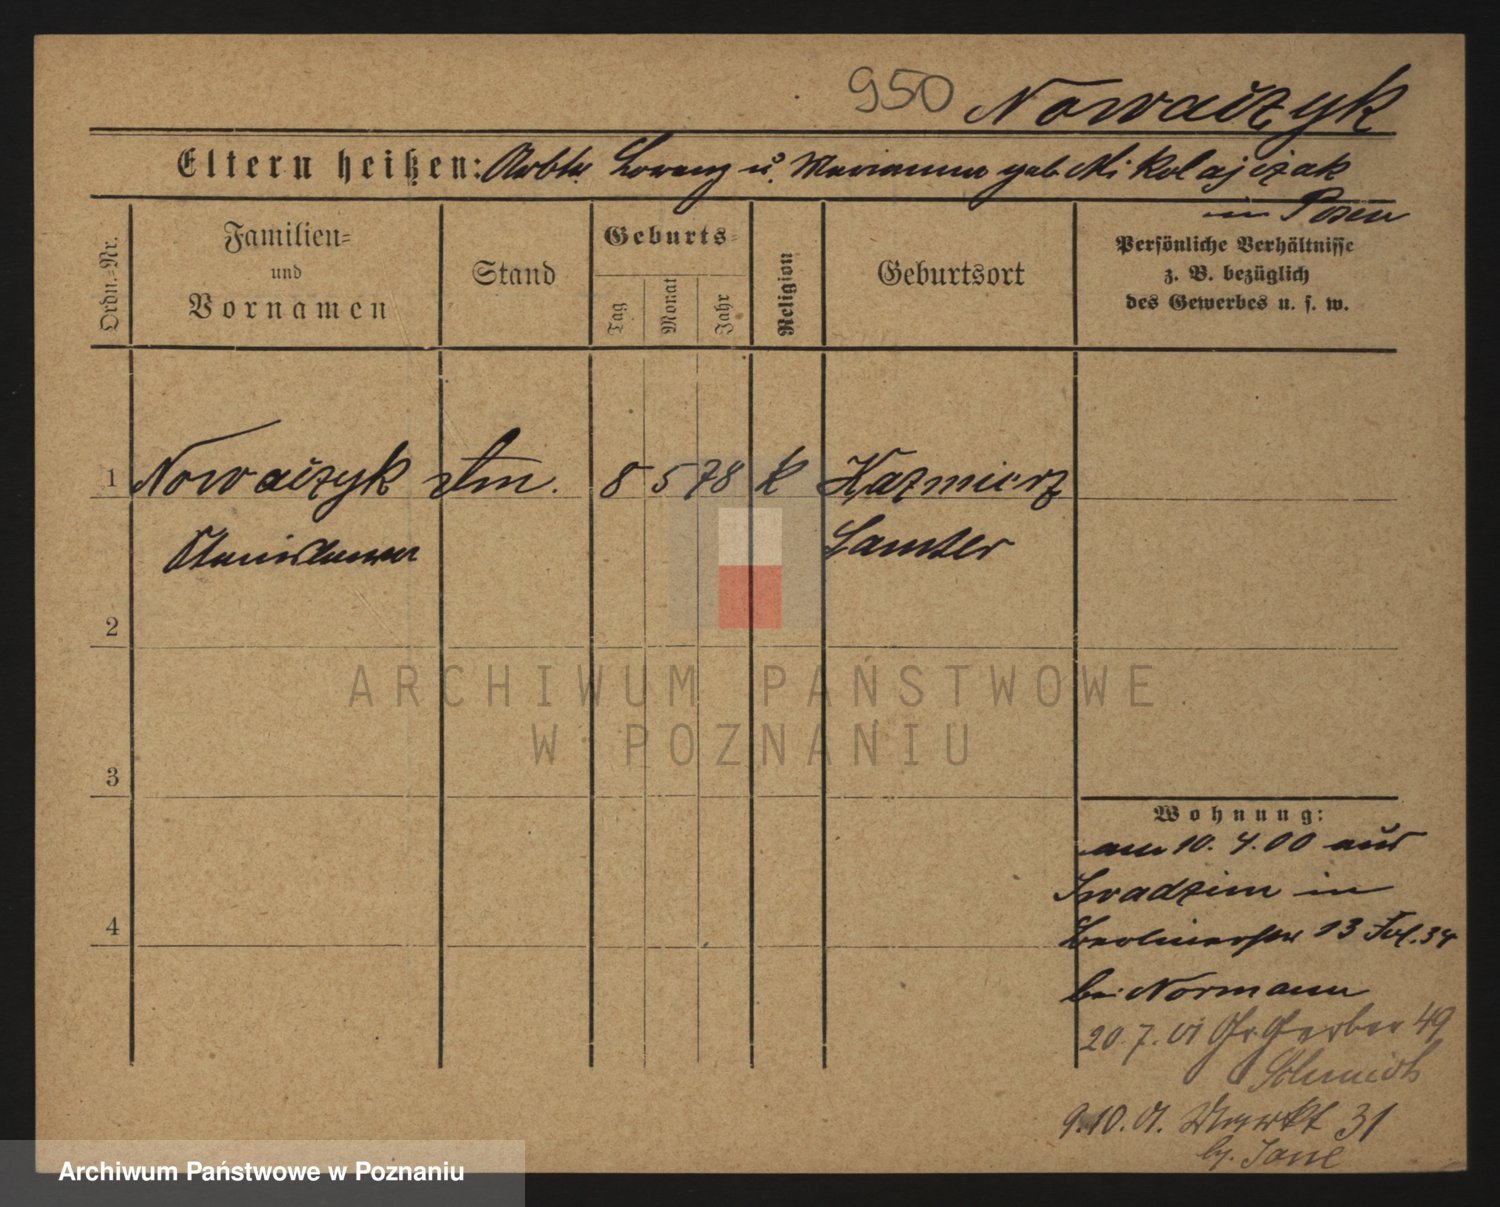 950 Nowaczyk
Eltern heißen: Arbtr. Lorenz u. Marianna geb. Mikolajczak
in Posen
Ordn.=Nr.
Familien=
und
Vornamen
Stand
Geburts=
Tag
Monat
Jahr
Religion
Geburtsort
Persönliche Verhältnisse
z. B. bezüglich
des Gewerbes u. s. w.
1 Nowaczyk 8 5 78 k Kazmierz
Stanislawa Samter
2
ARCHIWUM PAŃSTWOWE
W POZNANIU
3
Wohnung:
am 10. 4. 00 aus
in
4
Berlinerstr 13 34
bei Normann
20. 7. 01 Gr Gerber 49
Schmidt
9. 10. 01. 31
Archiwum Państwowe w Poznaniu